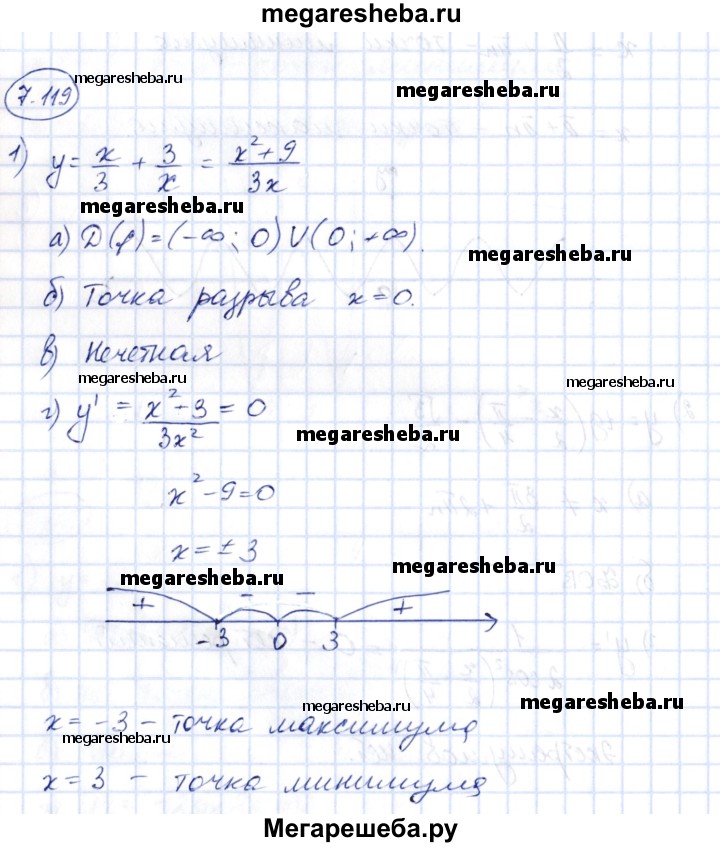 megaresheba.ru
7.119
megaresheba.ru
megaresheba.ru
1) y = x/3 + 3/x = (x² + 9)/(3x)
megaresheba.ru
а) D(f) = (-∞; 0) U (0; +∞).
megaresheba.ru
б) Точка разрыва x = 0.
в) Нечетная
megaresheba.ru
megaresheba.ru
г) y' = (x² - 3)/(3x²) = 0
megaresheba.ru
x² - 9 = 0
x = ± 3
megaresheba.ru
megaresheba.ru
+ - - +
-3 0 3
megaresheba.ru
x = -3 - точка максимума
megaresheba.ru
x = 3 - точка минимума
Мегарешеба.ру